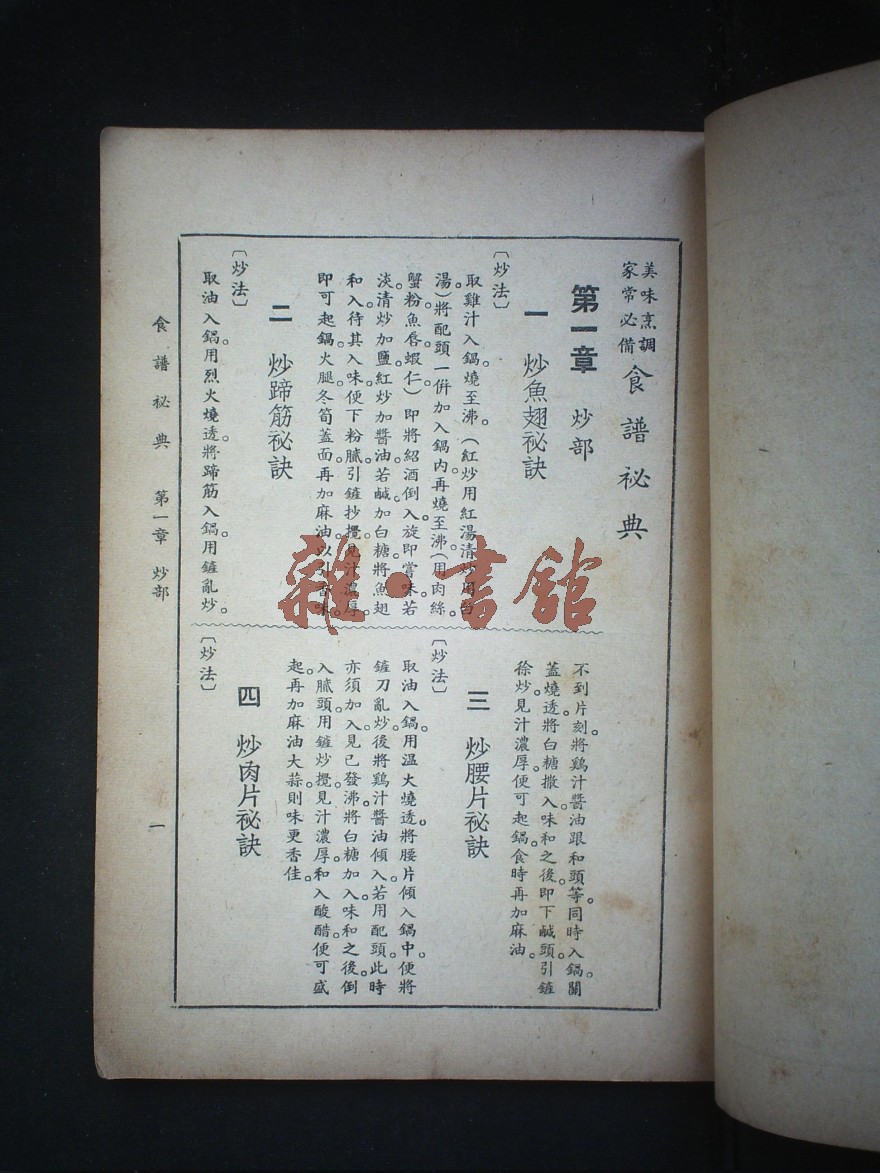 美味烹調
家常必備
食譜祕典
第一章 炒部
一 炒魚翅祕訣
〔炒法〕
取雞汁入鍋燒至沸。(紅炒用紅湯清炒用白
湯)將配頭一併加入鍋內。再燒至沸(用肉絲
蟹粉魚唇蝦仁)即將紹酒倒入。旋即嘗味。若
淡。清炒加鹽。紅炒加醬油。若鹹。加白糖。將魚翅
和入。待其入味。便下粉膩。引鏟抄攪。見汁濃厚。
即可起鍋。火腿冬筍蓋面。再加麻油以引香味
二 炒蹄筋祕訣
〔炒法〕
取油入鍋。用烈火燒透。將蹄筋入鍋。用鏟亂炒。
不到片刻。將鷄汁醬油跟和頭等。同時入鍋。關
蓋燒透。將白糖撒入。味和之後。即下鹹頭。引鏟
徐炒。見汁濃厚。便可起鍋。食時再加麻油。
三 炒腰片祕訣
〔炒法〕
取油入鍋。用溫火燒透。將腰片傾入鍋中。便將
鏟刀亂炒。後將鷄汁醬油傾入。若用配頭。此時
亦須加入。見已發沸。將白糖加入。味和之後。倒
入膩頭。用鏟炒攪。見汁濃厚。和入酸醋。便可盛
起。再加麻油大蒜。則味更香佳。
四 炒肉片祕訣
〔炒法〕
食譜祕典 第一章 炒部
一
雜·書館